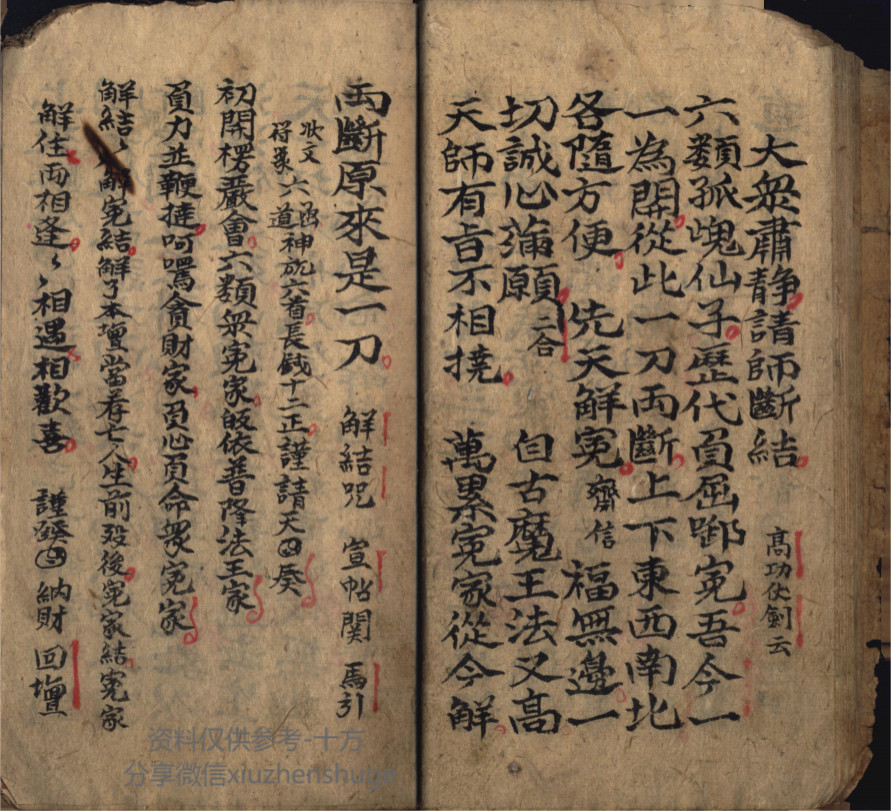 大衆肅静請師斷結 高功仗劍云
六類孤魂仙子歷代負屈啣寃吾今一
一為開從此一刀両斷上下東西南北
各隨方便 先天解寃 齊信 福無邊一
切誠心蒲願 二合 自古魔王法又高
天師有旨不相撓 萬累寃家從今解
両斷原來是一刀 解結咒 宣帖関 馬引
六道神 六首長錢十二正謹請天
初開楞嚴會六類衆寃家皈依普降法王家
負力並鞭撻呵嘿貪財家負心負命衆寃家
解結解寃結解了本壇當荐亡人生前殁後寃家結寃家
解住両相逢相遇相歡喜 謹 納財 回壇
资料仅供参考-十方
分享微信xiuzhenshuge